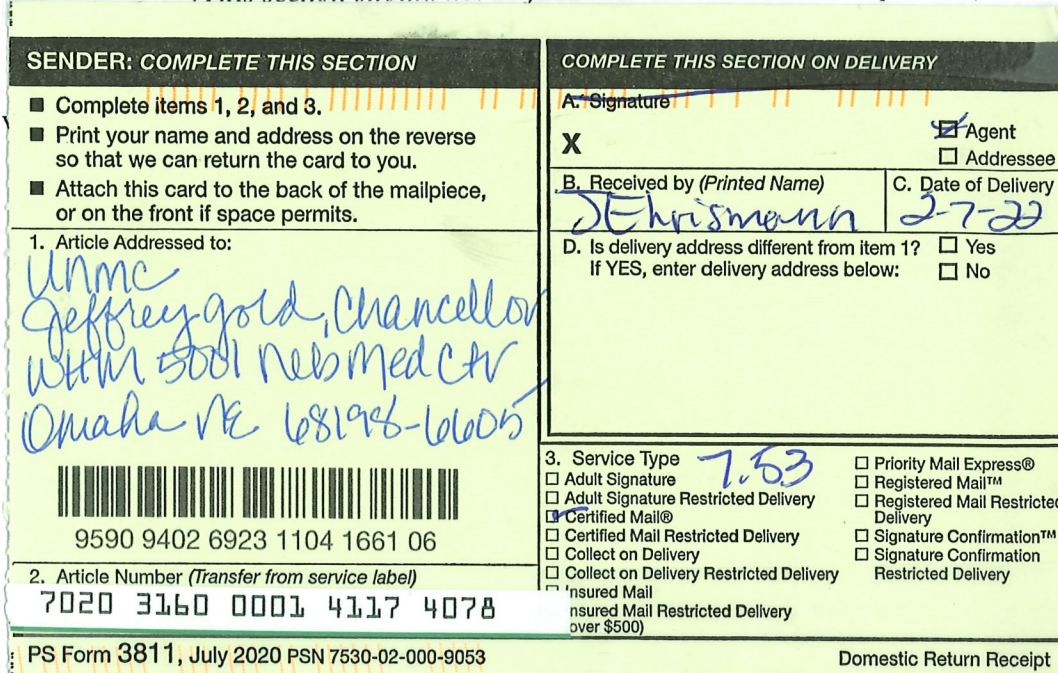 SENDER: COMPLETE THIS SECTION
■ Complete items 1, 2, and 3.
■ Print your name and address on the reverse
so that we can return the card to you.
■ Attach this card to the back of the mailpiece,
or on the front if space permits.
1. Article Addressed to:
UNMC
Jeffrey Gold, Chancellor
WHM 5001 Neb Med Ctr
Omaha NE 68198-6605
9590 9402 6923 1104 1661 06
2. Article Number (Transfer from service label)
7020 3160 0001 4117 4078
COMPLETE THIS SECTION ON DELIVERY
A. Signature
X
☑ Agent
☐ Addressee
B. Received by (Printed Name)
JEhrismann
C. Date of Delivery
2-7-22
D. Is delivery address different from item 1? ☐ Yes
If YES, enter delivery address below: ☐ No
3. Service Type 7.53
☐ Adult Signature
☐ Adult Signature Restricted Delivery
☑ Certified Mail®
☐ Certified Mail Restricted Delivery
☐ Collect on Delivery
☐ Collect on Delivery Restricted Delivery
☐ Insured Mail
Insured Mail Restricted Delivery
over $500)
☐ Priority Mail Express®
☐ Registered Mail™
☐ Registered Mail Restricted
Delivery
☐ Signature Confirmation™
☐ Signature Confirmation
Restricted Delivery
PS Form 3811, July 2020 PSN 7530-02-000-9053
Domestic Return Receipt